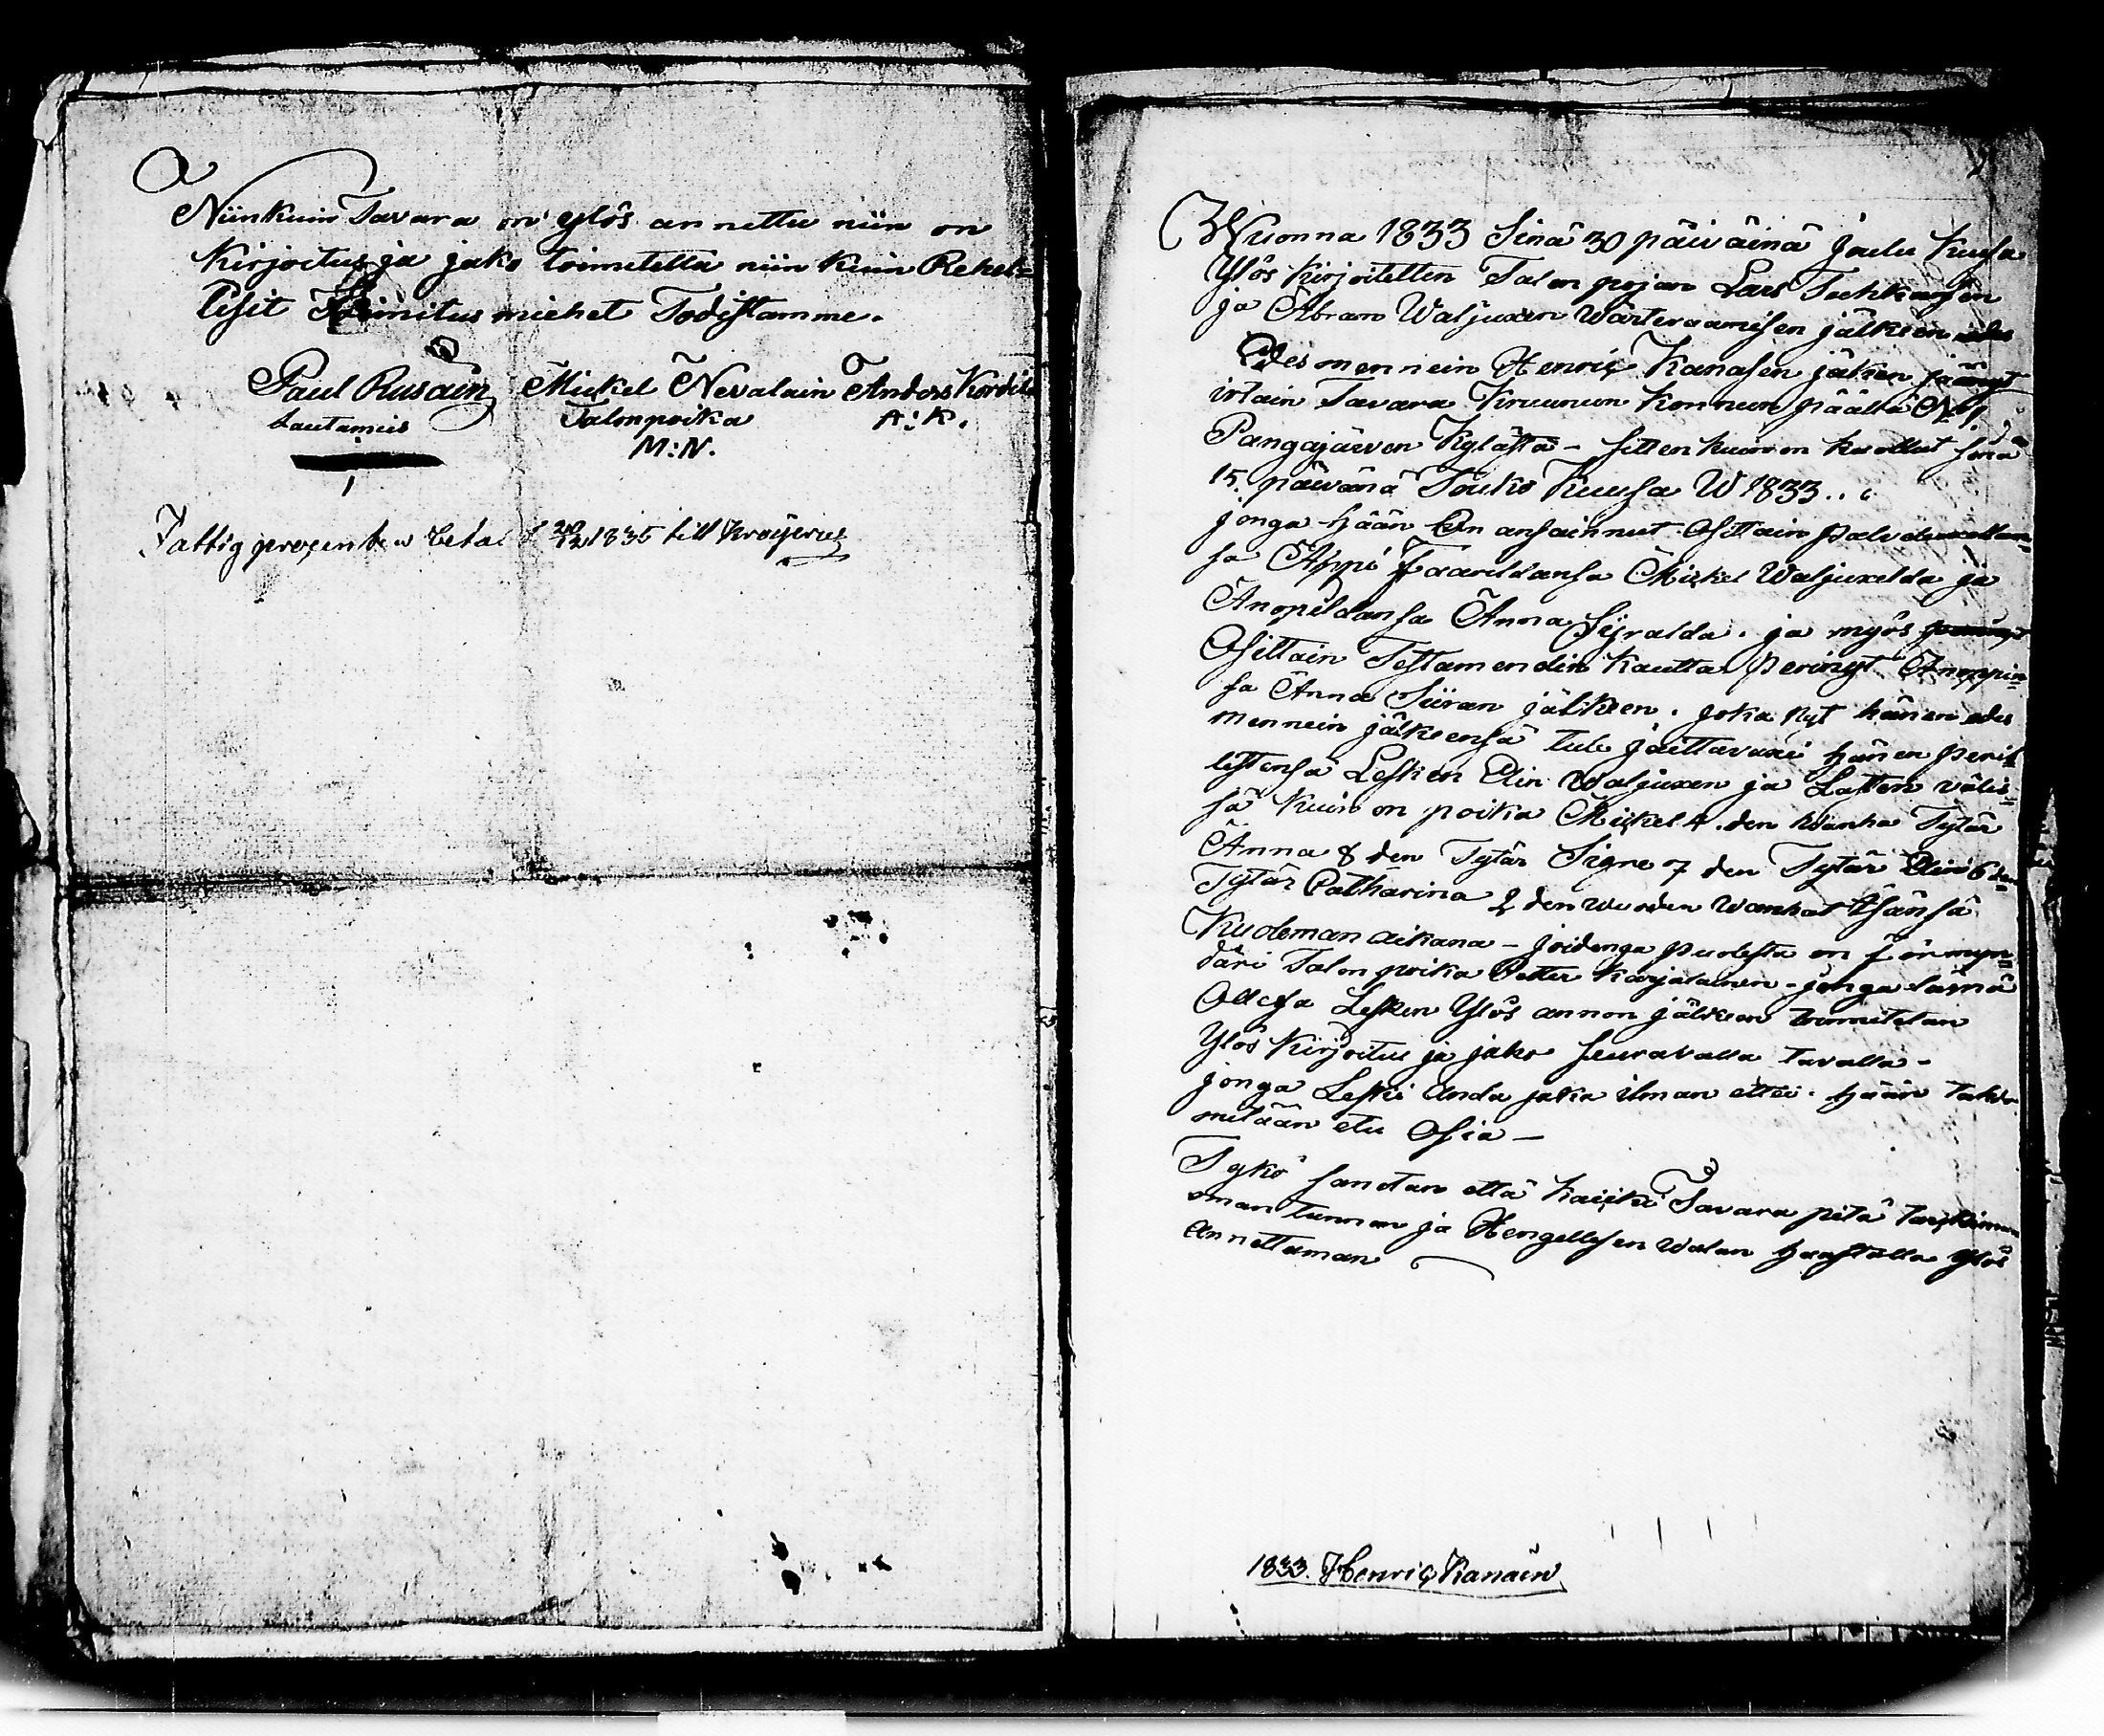 Niinkuin Tavara on ylös annettu niin on
Kirjoitus ja jako toimitettu niin kuin Rehel=
lisit Toimitus miehet Todistamme.
Paul Rusain Mickel Nevalain Anders Kordilа
Lautamies Talonpoika A:K.
M:N.
Fattigprocenten betal 20/12 1835 till
Wuonna 1833 Sinä 30 päivänä Joulu Kuusa
Ylös Kirjoitettin Talonpojan Lars Tuhkasen
ja Abram Waljuxen Wärteraamisen jälkeen
Edesmennein Henriç Kanasen jälken jäänyt
irtain Tavara Kruunun Konnun päältä No 9
Pangajärven Kylästä – sitten kuin on kuollut sinä
15. päivänä Touko Kuusa W 1833..
jonga hään on ansainnut Osittain
sa Appi Faarildansa Mickel Waljuxelda ja
Anopildansa Anna Sijralda. ja myös
Osittain Testamendin Kautta Perinyt Anoppin=
sa Anna Siiran jälkeen. joka nyt hänen edes
mennein jälkeensä tule jaettavaxi hänen peril
listensä Lesken Elin Waljuxen ja Lasten välis=
sä kuin on poika Mickel 4. den wanha Tytär
Anna 8 den Tytär Signe 7 den Tytär Elin 6 den
Tytär Catharina 2 den wuoden wanhat Isänsä
Kudeman aikana – joidenga puolesta on Förmyn=
däri Talonpoika Petter Karjalainen – jonga läsnä
Ollesa Lesken Ylös annon jälkeen toimitetan
Ylös Kirjoitus ja jako seuravalla tavalla –
jonga Leski Anda jaka ilman ettei. hään tahdo
mitään etu Osia –
Tykö sanotan että kaicki Tavara pitä tarkimman
oman tunnon ja Hengellisen Walan haastolla Ylös
Annettaman
1833. Henriç Kanain